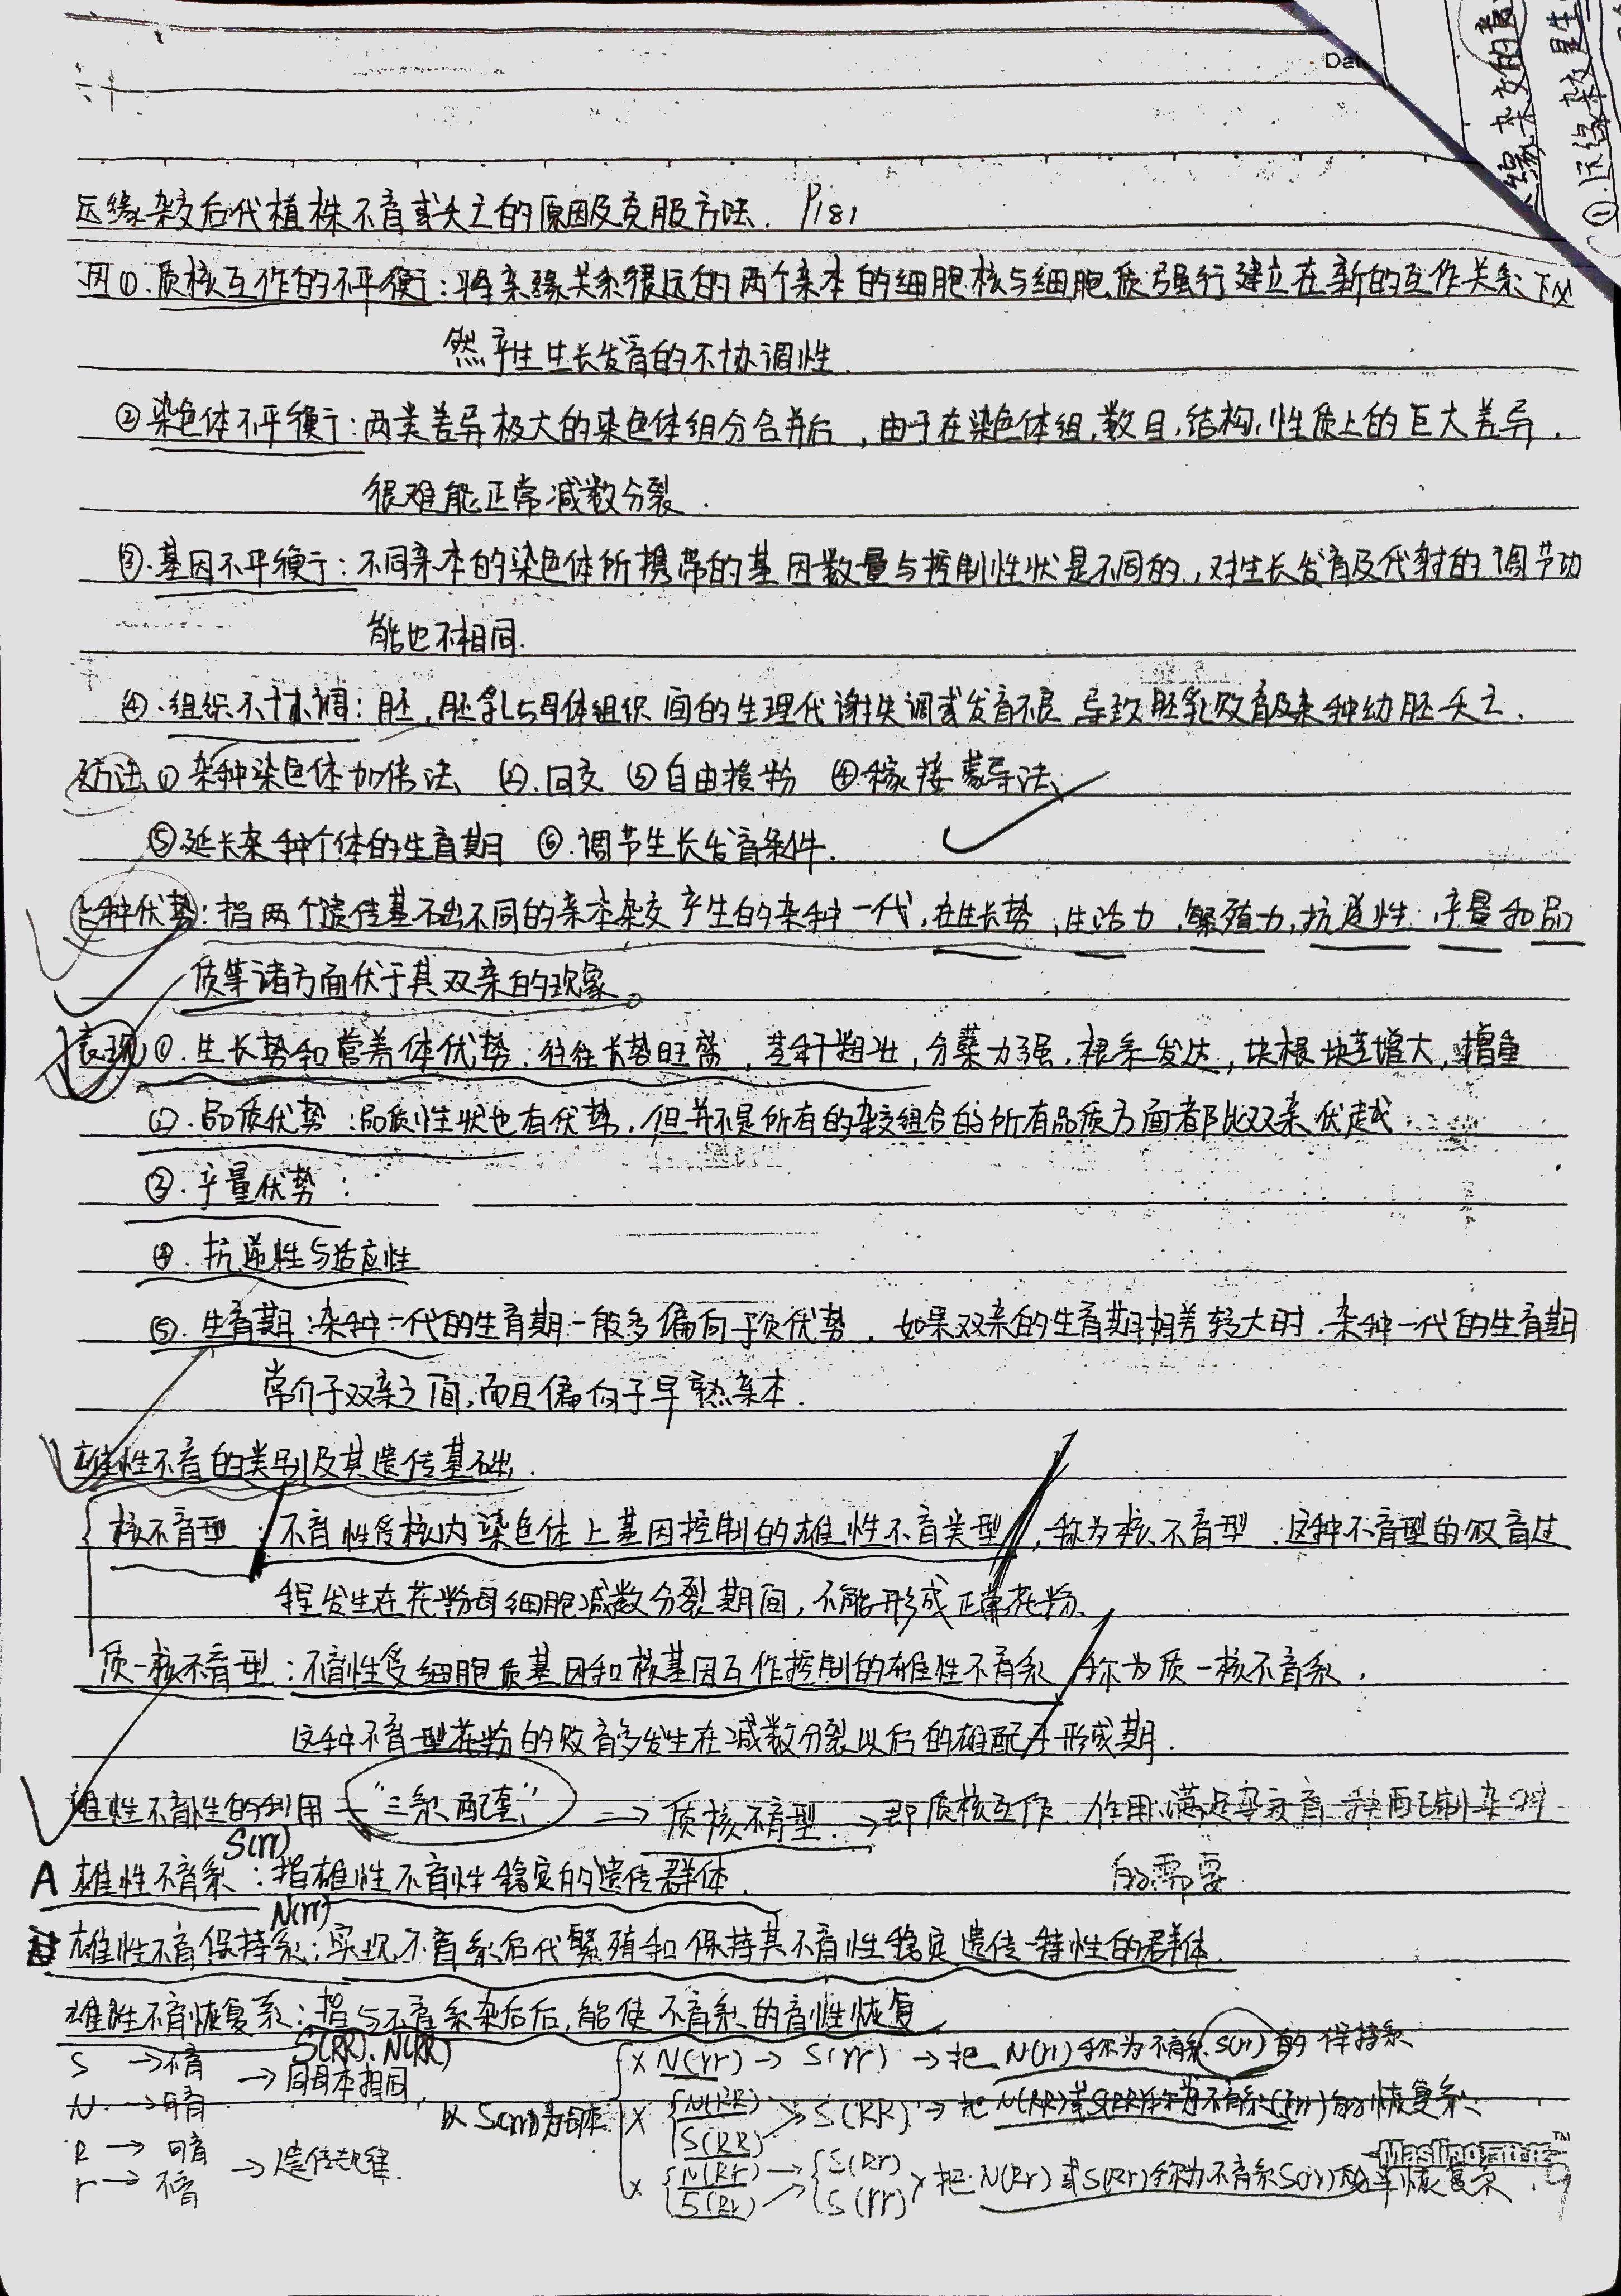 Dat
缘杂交的意
①.远缘杂交是生
远缘杂交后代植株不育或夭亡的原因及克服方法. P181
因①.质核互作的不平衡:将亲缘关系很远的两个亲本的细胞核与细胞质强行建立在新的互作关系下必
然产生生长发育的不协调性.
②染色体不平衡:两类差异极大的染色体组分合并后,由于在染色体组,数目,结构,性质上的巨大差异,
很难能正常减数分裂.
③.基因不平衡:不同亲本的染色体所携带的基因数量与控制性状是不同的,对生长发育及代谢的调节功
能也不相同.
④.组织不协调:胚,胚乳与母体组织间的生理代谢失调或发育不良 导致胚乳败育及杂种幼胚夭亡.
方法①杂种染色体加倍法 ②.回交 ③自由授粉 ④.稼接蒙导法
⑤延长杂种个体的生育期 ⑥.调节生长发育条件.
种优势:指两个遗传基础不同的亲本杂交产生的杂种一代,在生长势,生活力,繁殖力,抗逆性,产量和品
质等诸方面优于其双亲的现象。
表现①.生长势和营养体优势:往往长势旺盛,茎秆粗壮,分蘖力强,根系发达,块根块茎增大,增重
②.品质优势:品质性状也有优势,但并不是所有的杂交组合的所有品质方面都比双亲优越.
③.产量优势:
④.抗逆性与适应性
⑤.生育期:杂种一代的生育期一般多偏向于负优势,如果双亲的生育期相差较大时,杂种一代的生育期
常介于双亲之间,而且偏向于早熟亲本.
雄性不育的类别及其遗传基础.
核不育型:不育性受核内染色体上基因控制的雄性不育类型,称为核不育型.这种不育型的败育过
程发生在花粉母细胞减数分裂期间,不能形成正常花粉.
质-核不育型:不育性受细胞质基因和核基因互作控制的雄性不育系,称为质-核不育系.
这种不育型花粉的败育多发生在减数分裂以后的雄配子形成期.
雄性不育性的利用—"三系配套" ⇒ 质核不育型.→即质核互作.作用.满足 配制杂种
的需要
S(rr)
A 雄性不育系:指雄性不育性稳定的遗传群体.
N(rr)
雄性不育保持系:实现不育系后代繁殖和保持其不育性稳定遗传特性的群体.
雄性不育恢复系:指与不育系杂后后,能使不育系的育性恢复
S(RR).N(RR)
S →不育
N →可育
→同母本相同
R → 可育
r → 不育
→遗传规律.
以S(rr)为母本
× N(rr) → S(rr) →把 N(rr)称为不育系S(rr)的保持系
× {N(RR) S(RR) → S(RR) → 把N(RR)或S(RR)称为不育系S(rr)的恢复系.
× {N(Rr) S(Rr) → {S(Rr) S(rr) 把N(Rr)或S(Rr)称为不育系S(rr)的半恢复系.